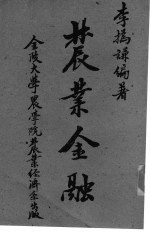 李揚謙編著
農業金融
金陵大學農學院農業經濟系出版